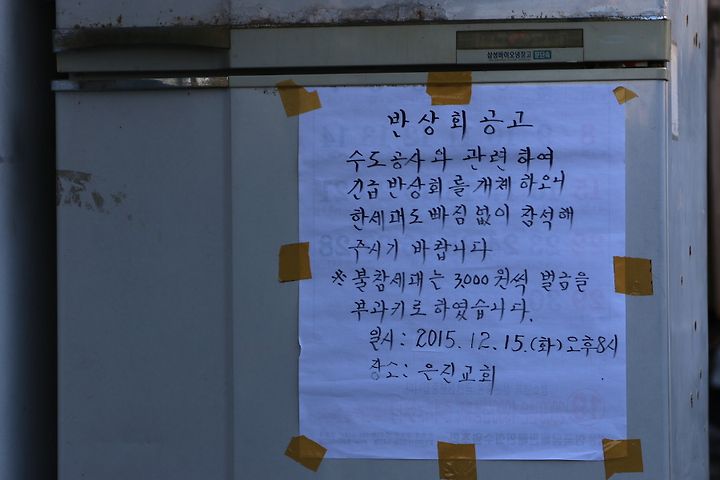 삼성바이오냉장고
반상회공고
수도공사와 관련하여
긴급반상회를 개체하오니
한세대도 빠짐없이 참석해
주시기 바랍니다
※ 불참세대는 3,000원씩 벌금을
부과키로 하였습니다.
일시: 2015.12.15.(화)오후8시
장소: 은진교회